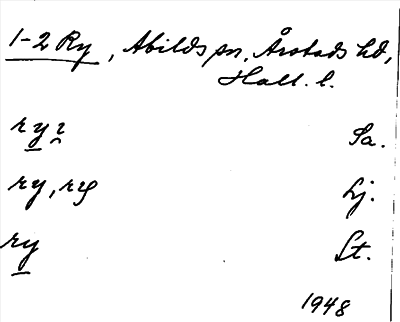 1-2 Ry, Abilds sn, Årstads hd,
Hall. l.
ry Sa.
ry, Lj.
ry St.
1948